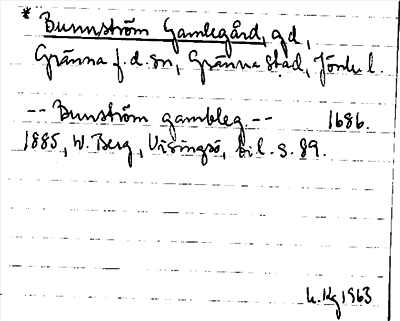 * Bunnström Gamlegård, gd,
Gränna f.d. sn, Gränna stad, Jönk. l.
-- Bunström gambleg -- 1686.
1885, W. Berg, Visingsö, bil. s. 89.
h. Kg 1963